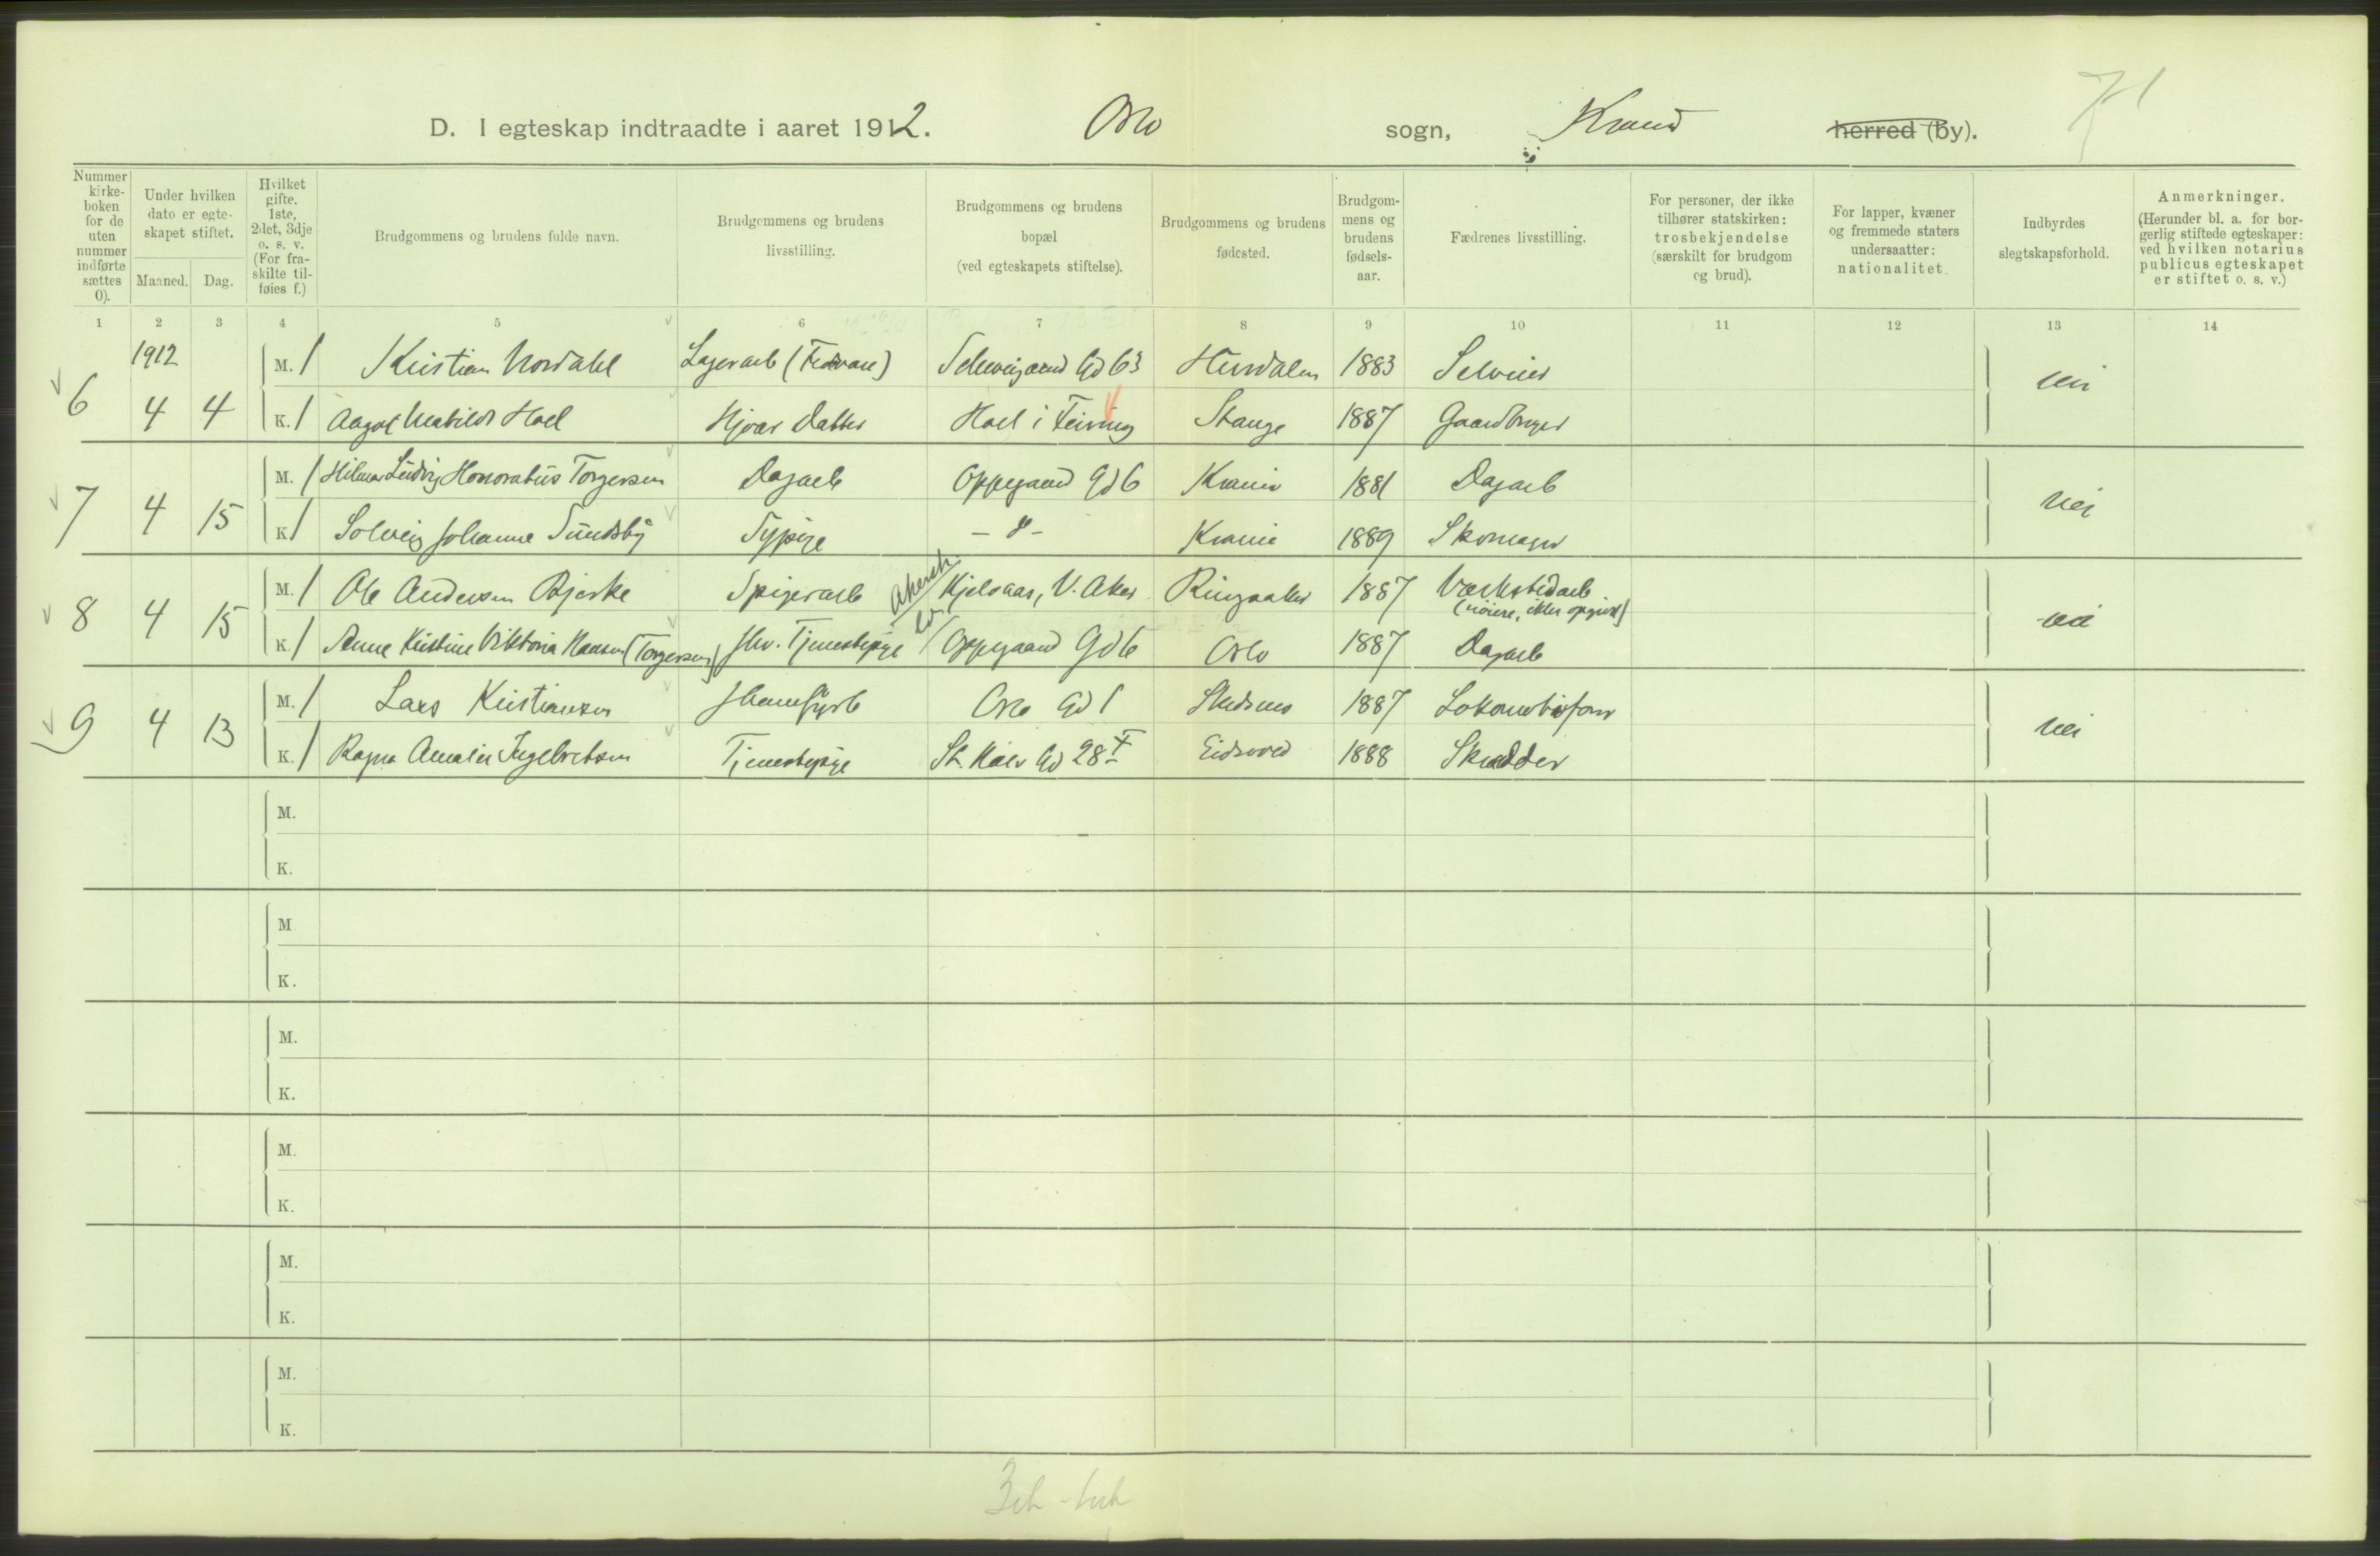 D. I egteskap indtraadte i aaret 1912. Oslo sogn, Krania herred (by). 71
Nummer kirke-boken for de uten nummer indførte sættes 0).
Under hvilken dato er egte-skapet stiftet.
Maaned. Dag.
Hvilket gifte. 1ste, 2det, 3dje o. s. v. (For fra-skilte til-føies f.)
Brudgommens og brudens fulde navn.
Brudgommens og brudens livsstilling.
Brudgommens og brudens bopæl (ved egteskapets stiftelse).
Brudgommens og brudens fødested.
Brudgom-mens og brudens fødsels-aar.
Fædrenes livsstilling.
For personer, der ikke tilhører statskirken: trosbekjendelse (særskilt for brudgom og brud).
For lapper, kvæner og fremmede staters undersaatter: nationalitet.
Indbyrdes slegtskapsforhold.
Anmerkninger. (Herunder bl. a. for bor-gerlig stiftede egteskaper: ved hvilken notarius publicus egteskapet er stiftet o. s. v.)
1 2 3 4 5 6 7 8 9 10 11 12 13 14
1912 M. 1 Kristian Nordahl Lagerarb (Fedevare) Schweigaard Gd 63 Hurdalen 1883 Selveier
6 4 4 K. 1 Aagot Mathilde Hoel Hjvær Datter Hoel i Feiring Stange 1887 Gaardbruger nei
M. 1 Hilmar Ludvig Honoratus Torgersen Dagarb Oppegaard Gd 6 Krania 1881 Dagarb
7 4 15 K 1 Solveig Johanne Sundby Sypige - " - Krania 1889 Skomager nei
M. 1 Ole Andersen Bjerke Spigerarb Akersh Kjelsaas, V. Aker Ringsaker 1887 Værkstedarb
(nøiere, ikke opgivet)
8 4 15 K. 1 Anne Kristine Viktoria Hansen (Torgersen) Tjenestepige Oppegaard Gd 6 Oslo 1887 Dagarb nei
M. 1 Lars Kristiansen Oslo Gd 1 Skedsmo 1887 Lokomotivform
9 4 13 K. 1 Ragna Amalie Ingebretsen Tjenestepige St. Halv Gd 28 Eidsvold 1888 Skrædder nei
M.
K.
M
K.
M.
K.
M.
K.
M.
K.
M.
K.